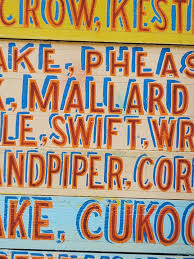 CROW, KEST
AKE, PHEAS
, MALLARD
LE, SWIFT, WR
NDPIPER, COR
AKE, CUKOO